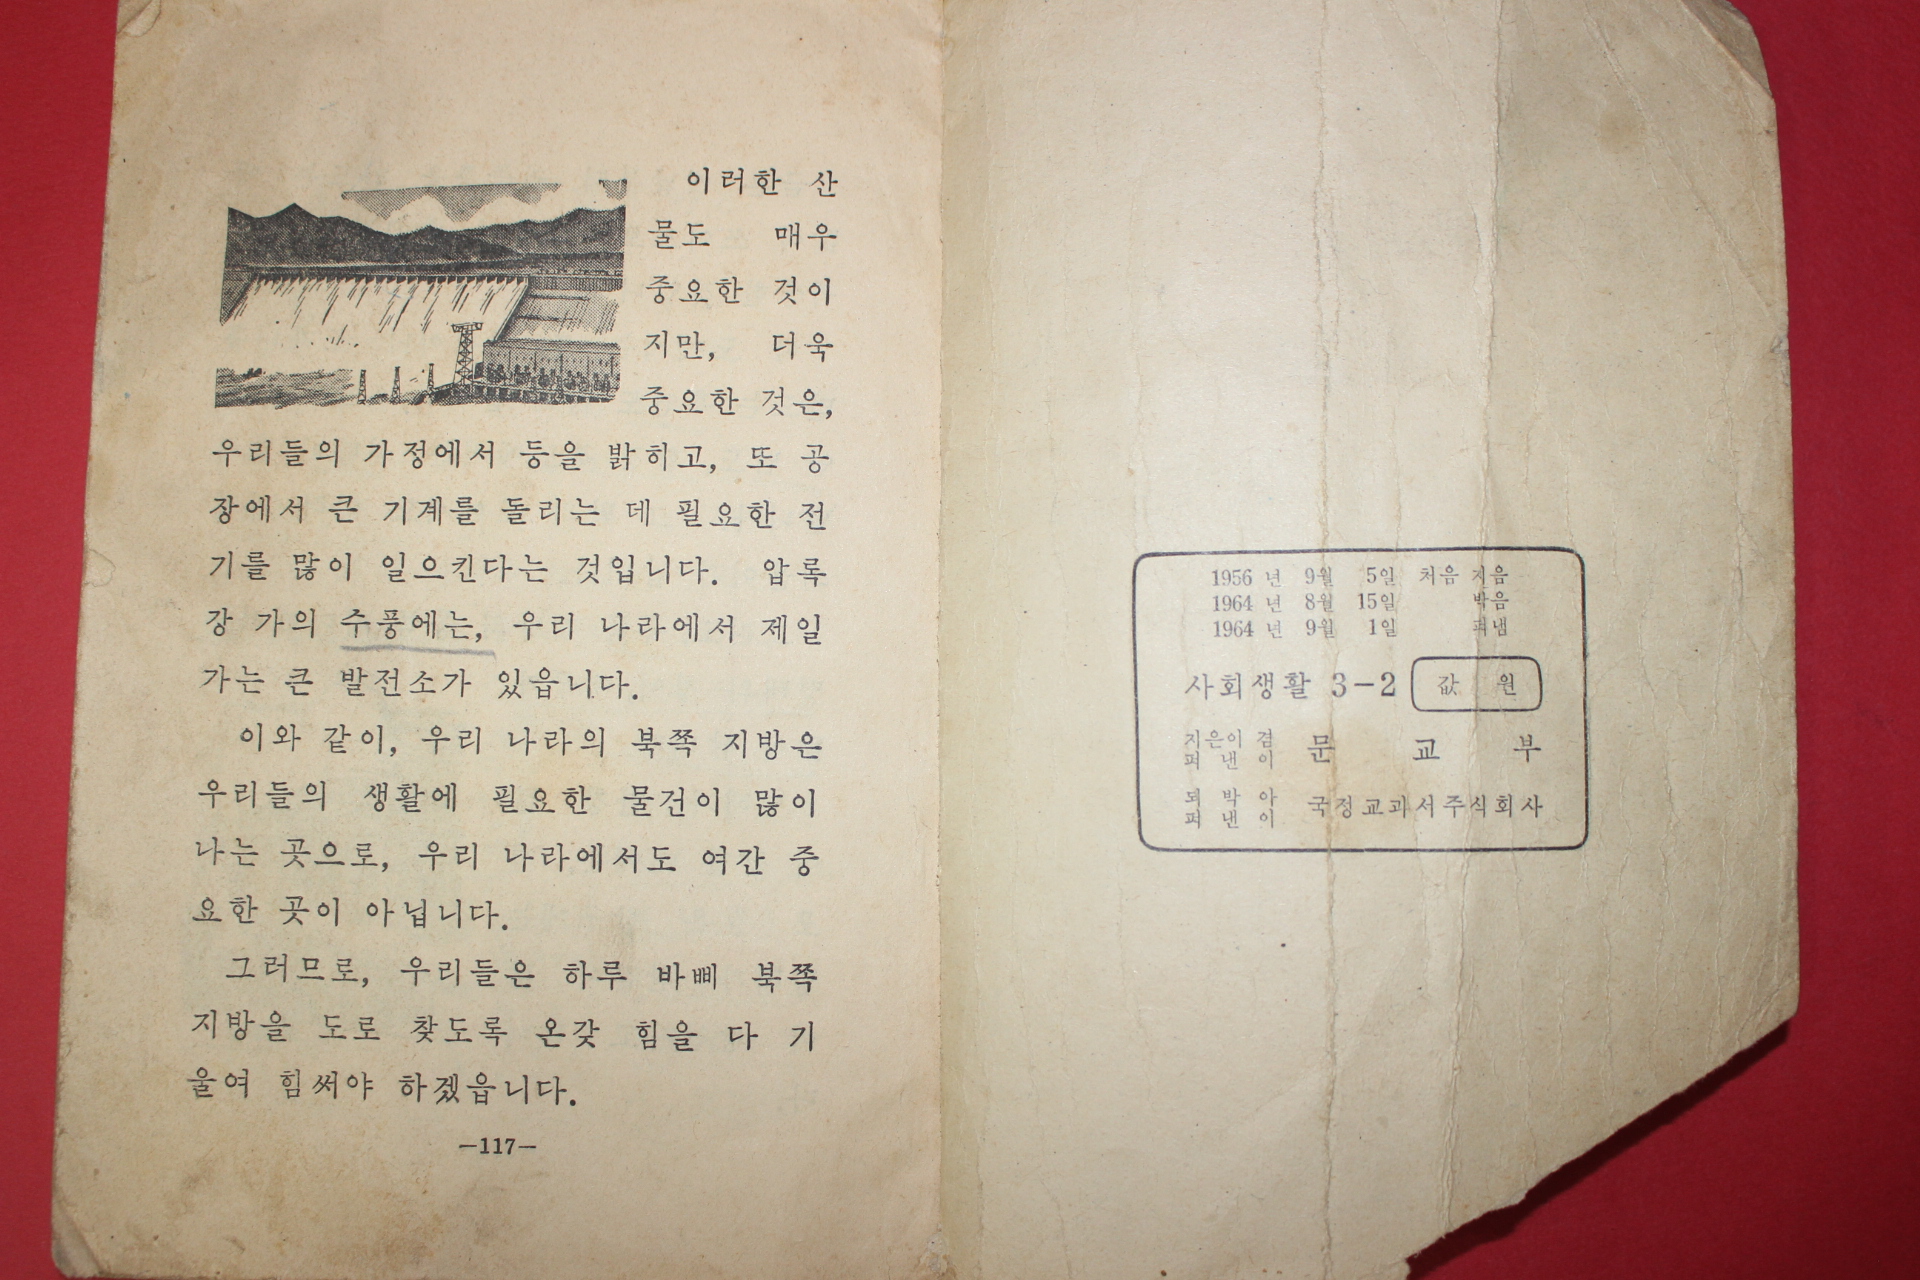 이러한 산
물도 매우
중요한 것이
지만, 더욱
중요한 것은,
우리들의 가정에서 등을 밝히고, 또 공
장에서 큰 기계를 돌리는 데 필요한 전
기를 많이 일으킨다는 것입니다. 압록
강 가의 수풍에는, 우리 나라에서 제일
가는 큰 발전소가 있읍니다.
이와 같이, 우리 나라의 북쪽 지방은
우리들의 생활에 필요한 물건이 많이
나는 곳으로, 우리 나라에서도 여간 중
요한 곳이 아닙니다.
그러므로, 우리들은 하루 바삐 북쪽
지방을 도로 찾도록 온갖 힘을 다 기
울여 힘써야 하겠읍니다.
—117—
1956 년 9월 5일 처음 지음
1964 년 8월 15일 박음
1964 년 9월 1일 펴냄
사회생활 3-2 값 원
지은이 겸
펴낸이 문교부
되박아
펴낸이 국정교과서주식회사